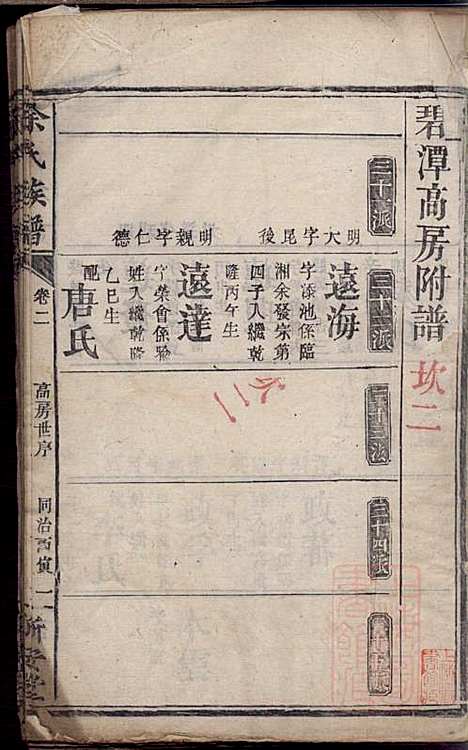 碧潭高房附譜 坎二
三十一派
三十二派
三十三派
三十四派
三十五派
明大字尾後
明親字仁德
遠海
字添池係臨
湘余發宗第
四子入繼乾
隆丙午生
遠達
字榮會係
姓入繼乾隆
乙巳生
配唐氏
余氏族譜
卷二
高房世序
同治丙寅